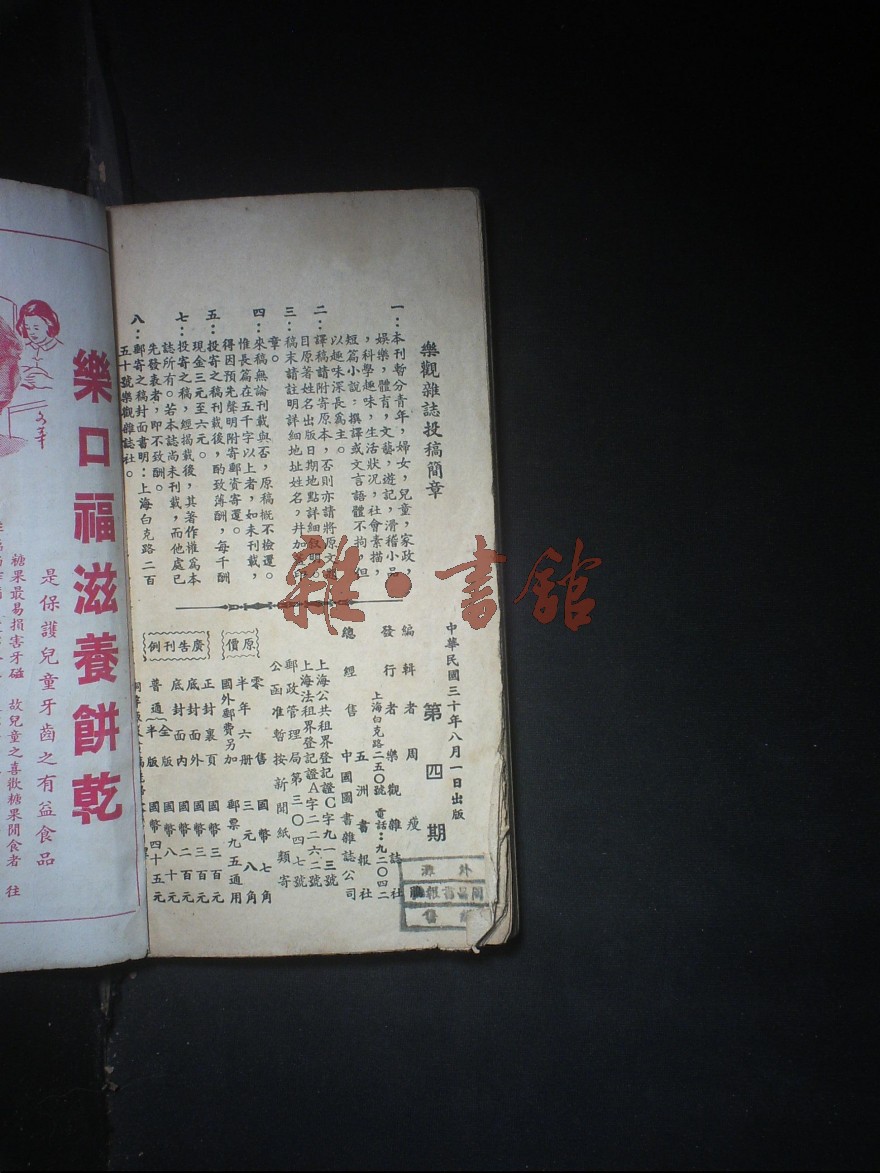 樂觀雜誌投稿簡章
一：本刊暫分青年，婦女，兒童，家政，
娛樂，體育，文藝，遊記，滑稽小品
，科學趣味，生活狀況，社會素描，
短篇小說：撰譯或文言語體不拘，但
以趣味深長爲主。
二：譯稿請附寄原本，否則亦請將原文題
目原著姓名出版日期地點詳細叙明。
三：稿末請註明詳細地址姓名，幷加蓋印
章。
四：來稿無論刊載與否，原稿概不檢還。
惟長篇在五千字以上者，如未刊載，
得因預先聲明附寄郵資寄還。
五：投寄之稿刊載後，酌致薄酬，每千酬
現金三元至六元。
七：投寄之稿，經揭載後，其著作權爲本
誌所有。若本誌尚未刊載，而他處已
先發表者，即不致酬。
八：郵寄之稿封面書明：上海白克路二百
五十號樂觀雜誌社。
中華民國三十年八月一日出版
第四期
編輯者 周瘦
發行者 樂觀雜誌社
上海白克路二五〇號 電話：九二〇四二
總經售 五洲書報社
中國圖書雜誌公司
上海公共租界登記證C字九一三號
上海法租界登記證A字二二六二號
郵政管理局第三〇四七號
公函准暫按新聞紙類寄
原價
零售 國幣七角
半年六册 三元八角
國外郵費另加 郵票九五通用
廣告刊例
正封裏頁 國幣三百元
底封面外 國幣三百元
底封面內 國幣二百元
普通全版 國幣八十元
半版 國幣四十五元
外灘
售
樂口福滋養餅乾
是保護兒童牙齒之有益食品
糖果最易損害牙磁 故兒童之喜歡糖果閒食者 往
雜·書館